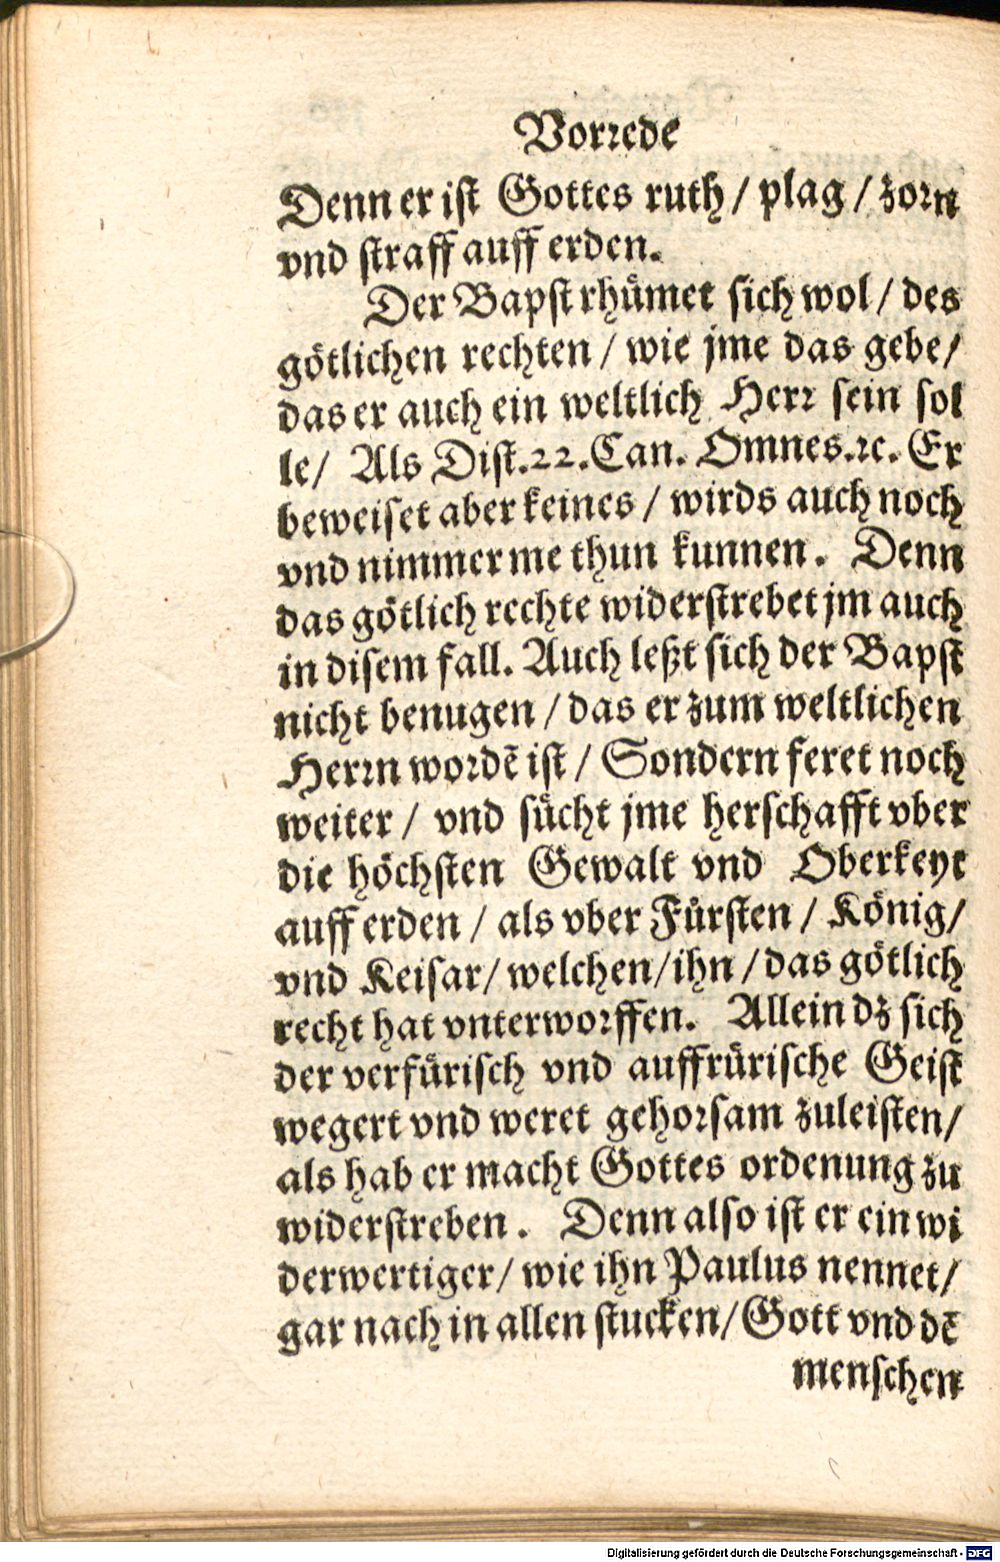 Vorrede
Denn er ist Gottes ruth / plag / zorn
vnd straff auff erden.
Der Bapst rhümet sich wol / des
götlichen rechten / wie jme das gebe /
das er auch ein weltlich Herr sein sol
le / Als Dist. 22. Can. Omnes. ꝛc. Er
beweiset aber keines / wirds auch noch
vnd nimmer me thun kunnen. Denn
das götlich rechte widerstrebet jm auch
in disem fall. Auch leßt sich der Bapst
nicht benugen / das er zum weltlichen
Herrn wordẽ ist / Sondern feret noch
weiter / vnd sücht jme herschafft vber
die höchsten Gewalt vnd Oberkeyt
auff erden / als vber Fürsten / König /
vnd Keisar / welchen / ihn / das götlich
recht hat vnterworffen. Allein dz sich
der verfürisch vnd auffrürische Geist
wegert vnd weret gehorsam zuleisten /
als hab er macht Gottes ordenung zu
widerstreben. Denn also ist er ein wi
derwertiger / wie ihn Paulus nennet /
gar nach in allen stucken / Gott vnd dẽ
menschen
Digitalisierung gefördert durch die Deutsche Forschungsgemeinschaft - DFG